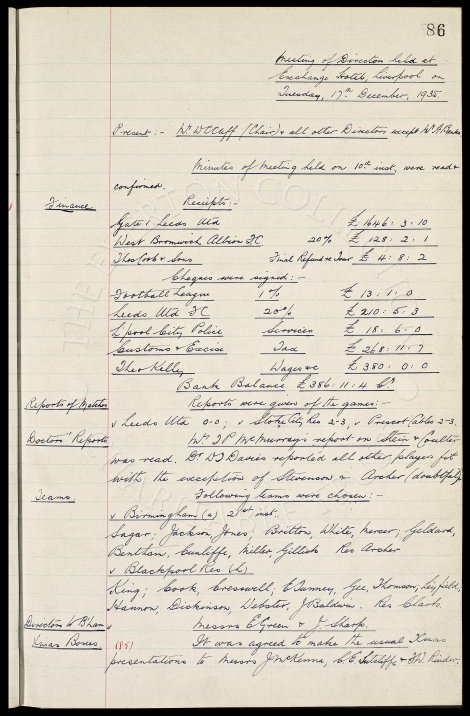 86
Meeting of Directors held at
Exchange Hotel, Liverpool on
Tuesday, 17th December, 1935
Present :- Mr W C Cuff (Chair) & all other Directors except Mr A. Coffey
Minutes of Meeting held on 10th inst. were read &
confirmed.
Finance Receipts :-
Gate v Leeds Utd £ 1646 : 3 . 10
West Bromwich Albion FC. 20% £ 128 : 2 : 1
Thos Cook & Sons Final Refund re Tour £ 4 : 8 : 2
Cheques were signed :-
Football League 1% £ 13 : 1 : 0
Leeds Utd FC 20% £ 210 : 5 : 3
L'pool City Police Services £ 18 : 6 : 0
Customs & Excise Tax £ 268 : 11 : 7
Theo Kelly Wages &c £ 380 : 0 : 0
Bank Balance £ 386 : 11 : 4 Cr
Reports of Matches Reports were given of the games :-
v Leeds Utd 0-0 ; v Stoke City Res 2-3, v Prescot Cables 2-3.
Doctors" Reports Mr. T P McMurray's report on Stein & Coulter
was read. Dr D J Davies reported all other players fit
with the exception of Stevenson & Archer (doubtful)
Teams Following teams were chosen :-
v Birmingham (a) 21st inst.
Sagar; Jackson, Jones; Britton, White, Mercer; Geldard,
Bentham, Cunliffe, Miller, Gillick Res Archer
v Blackpool Res (H)
King; Cook, Cresswell; E Tunney, Gee, Thomson; Leyfield,
Hannon, Dickinson, Webster, J Baldwin. Res Clark.
Directors to B'ham Messrs E Green & J Sharp.
Xmas Boxes It was agreed to make the usual Xmas
presentations to Messrs J McKenna, C E Sutcliffe & F W Rinder.